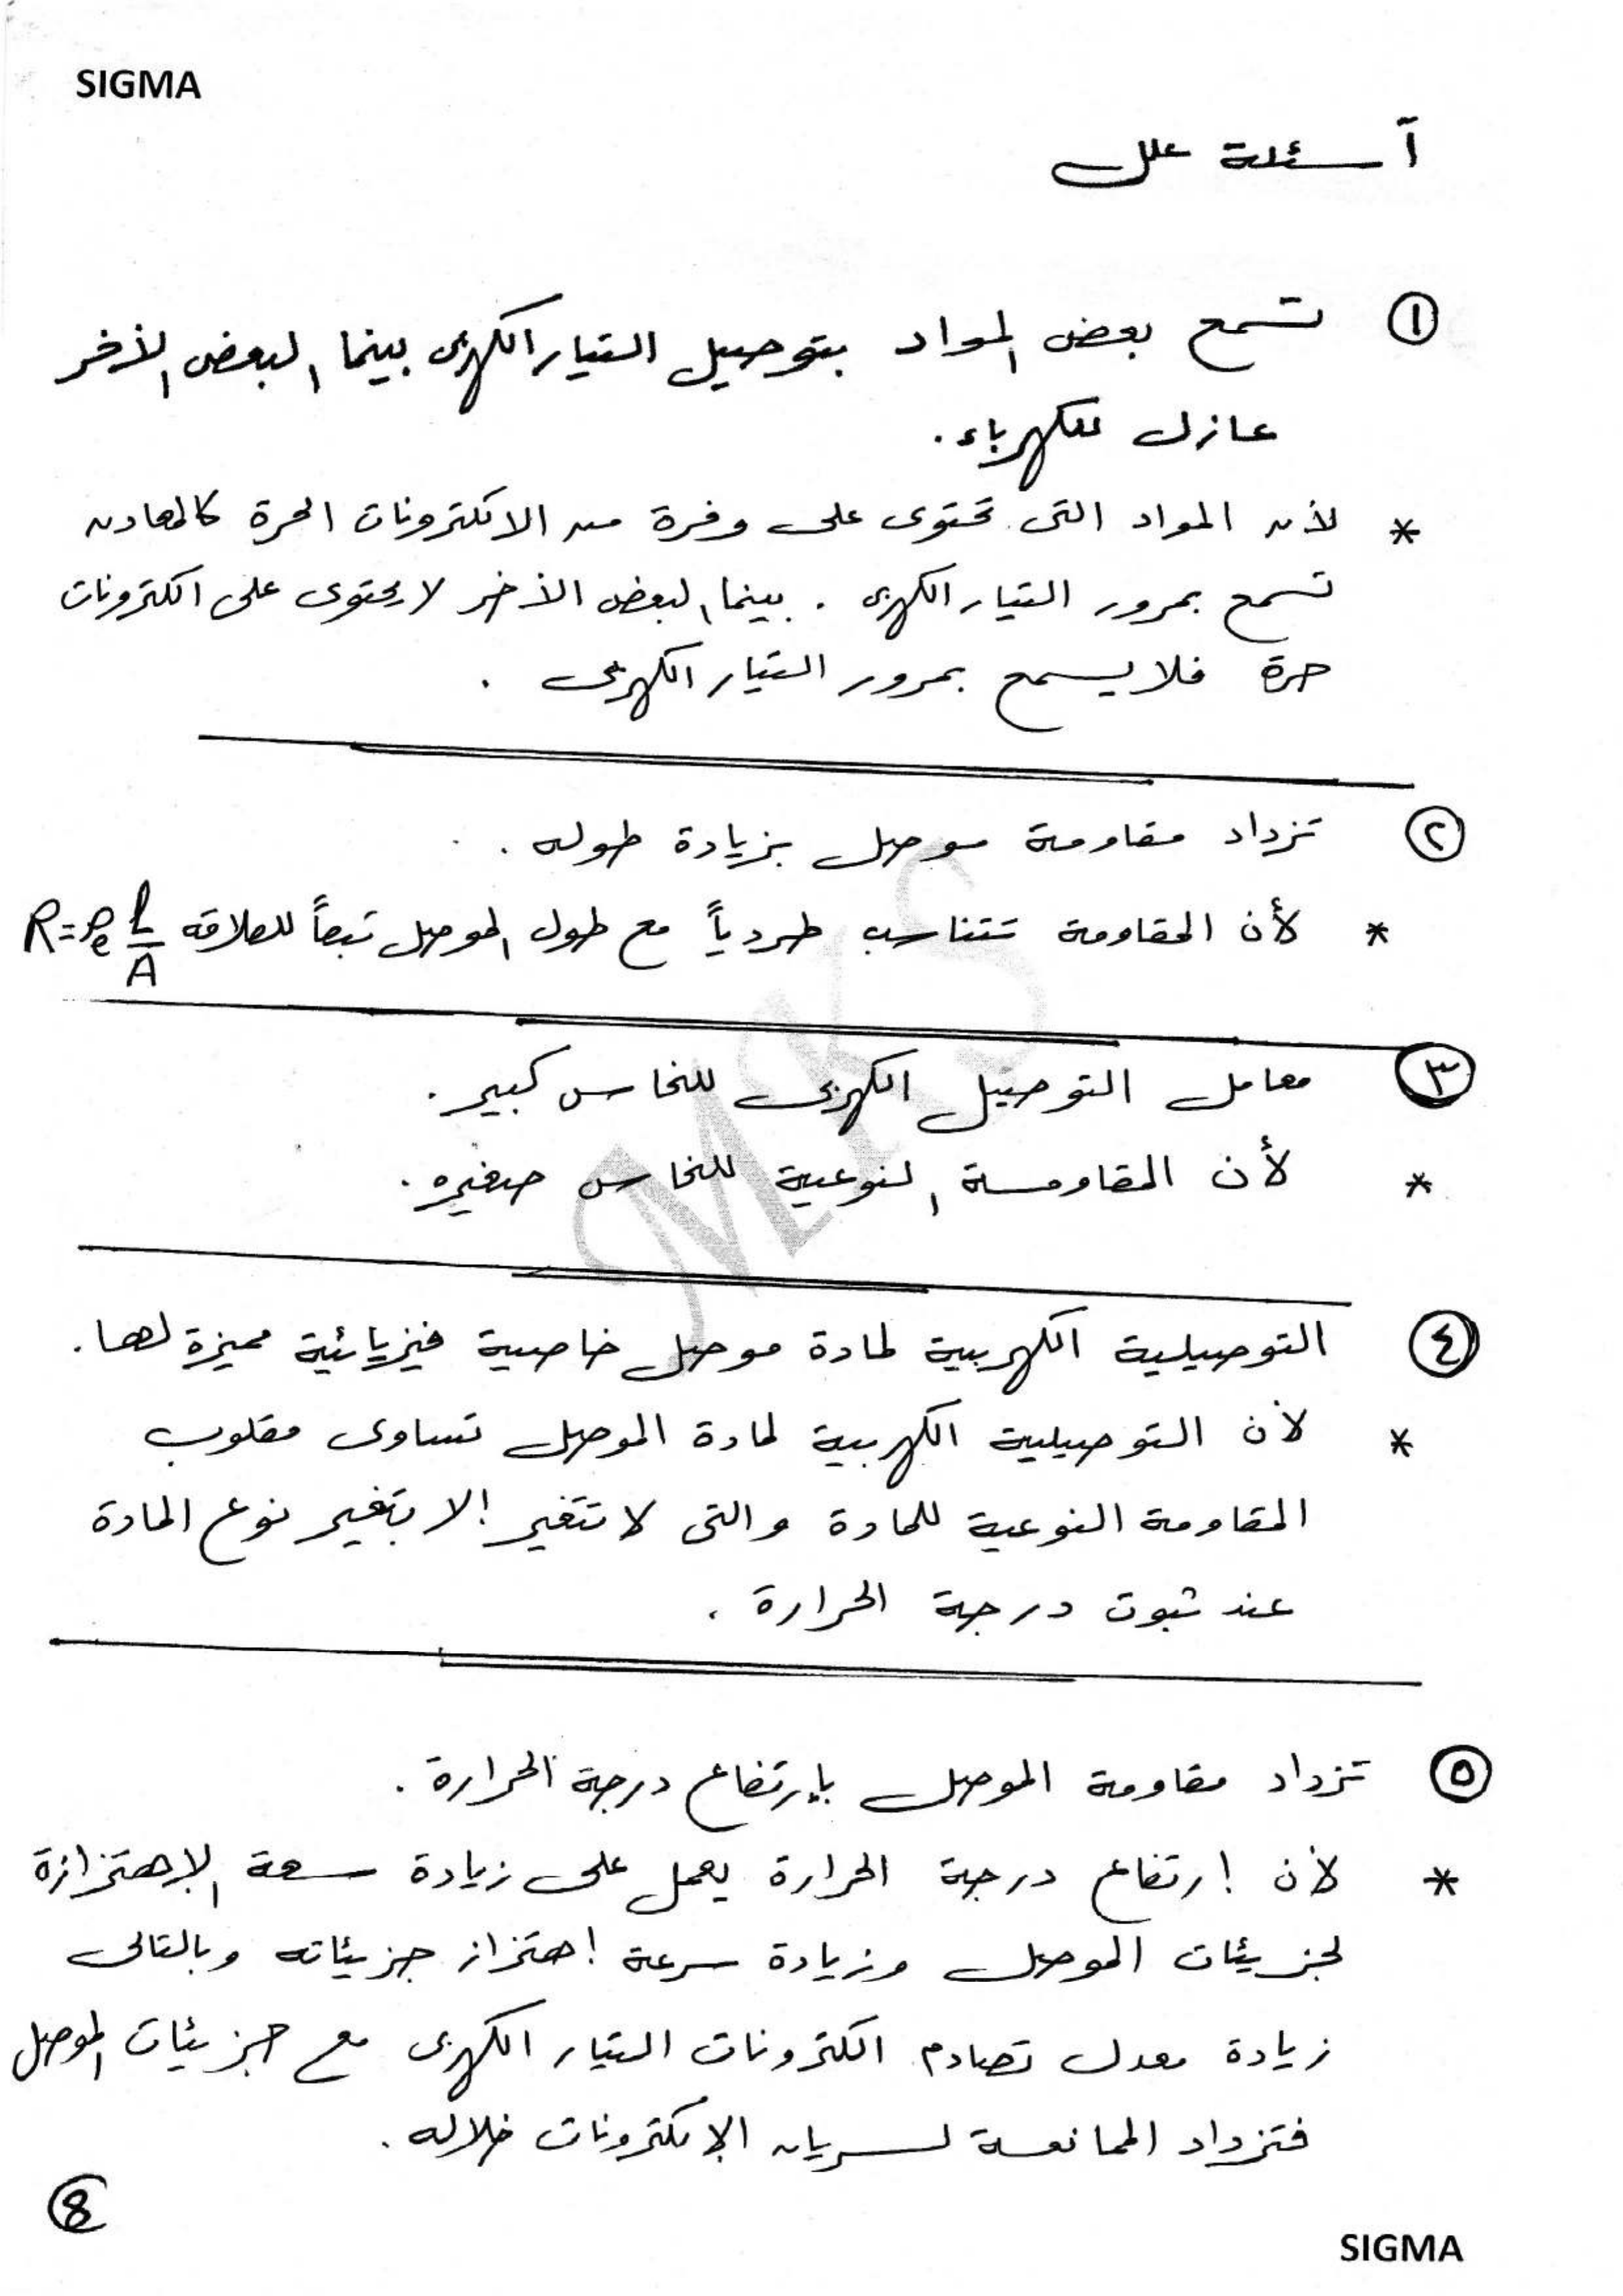 SIGMA
أسئلة علل
① تسمح بعض المواد بتوصيل التيار الكهربى بينما البعض الأخر
عازل للكهرباء.
* لأن المواد التى تحتوى على وفرة من الالكترونات الحرة كالمعادن
تسمح بمرور التيار الكهربى . بينما البعض الأخر لا يحتوى على الكترونات
حرة فلا يسمح بمرور التيار الكهربى .
② تزداد مقاومة موصل بزيادة طوله .
* لأن المقاومة تتناسب طردياً مع طول الموصل تبعاً للعلاقه R = ρe l/A
③ معامل التوصيل الكهربى للنحاس كبير .
* لأن المقاومة النوعية للنحاس صغيره .
④ التوصيلية الكهربية لمادة موصل خاصية فيزيائية مميزة لها .
* لأن التوصيلية الكهربية لمادة الموصل تساوى مقلوب
المقاومة النوعية للمادة والتى لا تتغير إلا بتغير نوع المادة
عند ثبوت درجة الحرارة .
⑤ تزداد مقاومة الموصل بإرتفاع درجة الحرارة .
* لأن إرتفاع درجة الحرارة يعمل على زيادة سعة الإهتزازة
لجزيئات الموصل وزيادة سرعة إهتزاز جزيئاته وبالتالى
زيادة معدل تصادم الكترونات التيار الكهربى مع جزيئات الموصل
فتزداد الممانعة لسريان الإلكترونات خلاله .
⑧
SIGMA
MKS